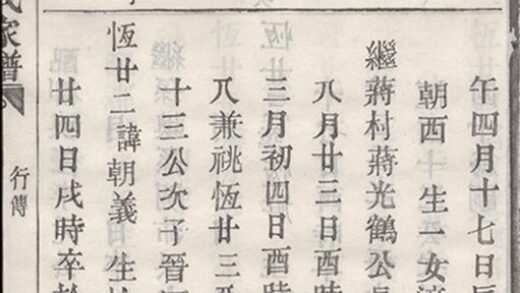 午四月十七日辰
朝西十生一女適
繼蔣村蔣光鶴公長
八月廿三日酉時
三月初四日酉時
八兼祧恆廿三
十三公次子晉
恆廿二諱朝義 生於
廿四日戌時卒於
氏家譜
行傳